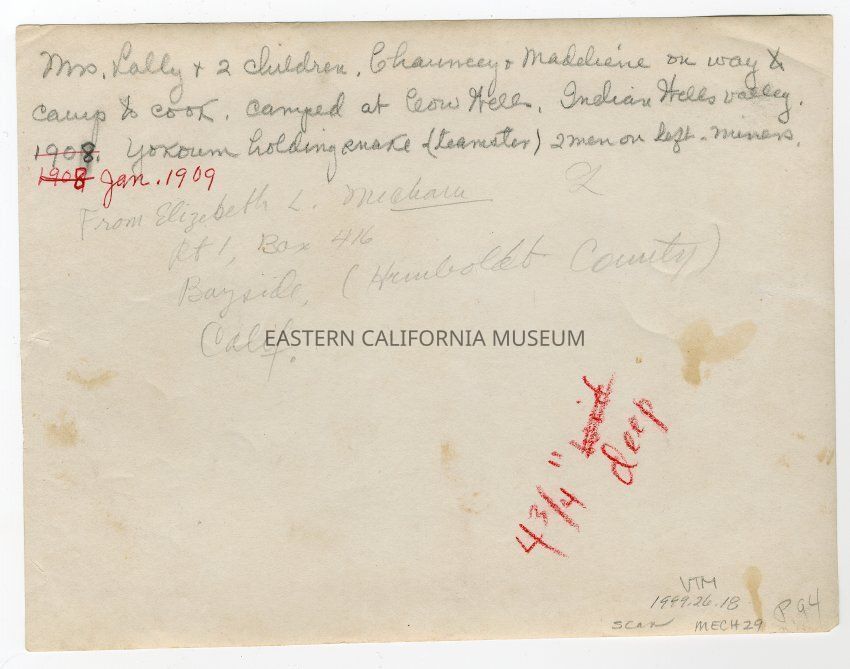 Mrs. Lally + 2 children. Chauncey + Madeliene on way to
camp to cook. Camped at Cow Hells. Indian Hells valley.
1908. Yokoum holding snake (teamster) 2 men on left - miners.
1908 Jan. 1909
From Elizabeth L. Mecham
Rt 1, Box 416
Bayside, (Humboldt County)
Calif.
EASTERN CALIFORNIA MUSEUM
4 3/4" deep
VTM
1999.26.18
scan MECH29
p. 94